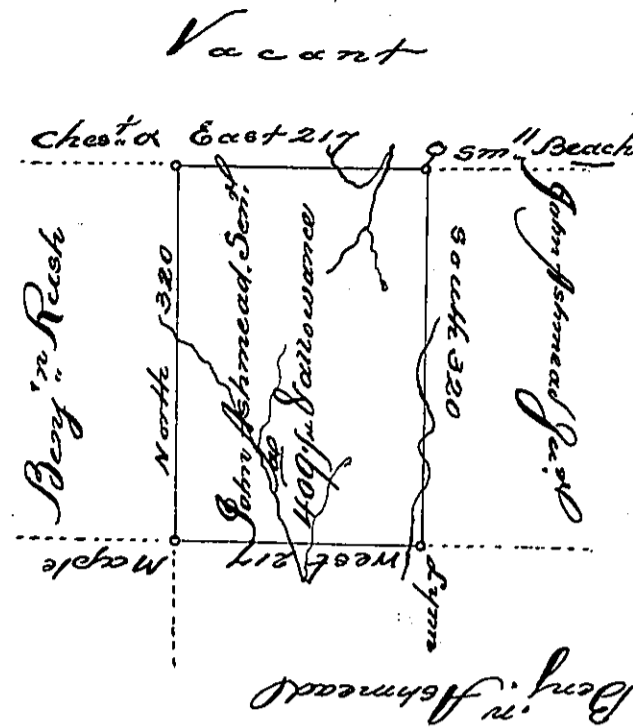 Vacant
Ches.t o East 217
Sm.ll Beach
Benj.n Rush
North 320
John Ashmead Sen.r
409 & allowance
South 320
John Ashmead Jun.r
Maple
West 217
Lynn
Benj.n Ashmead